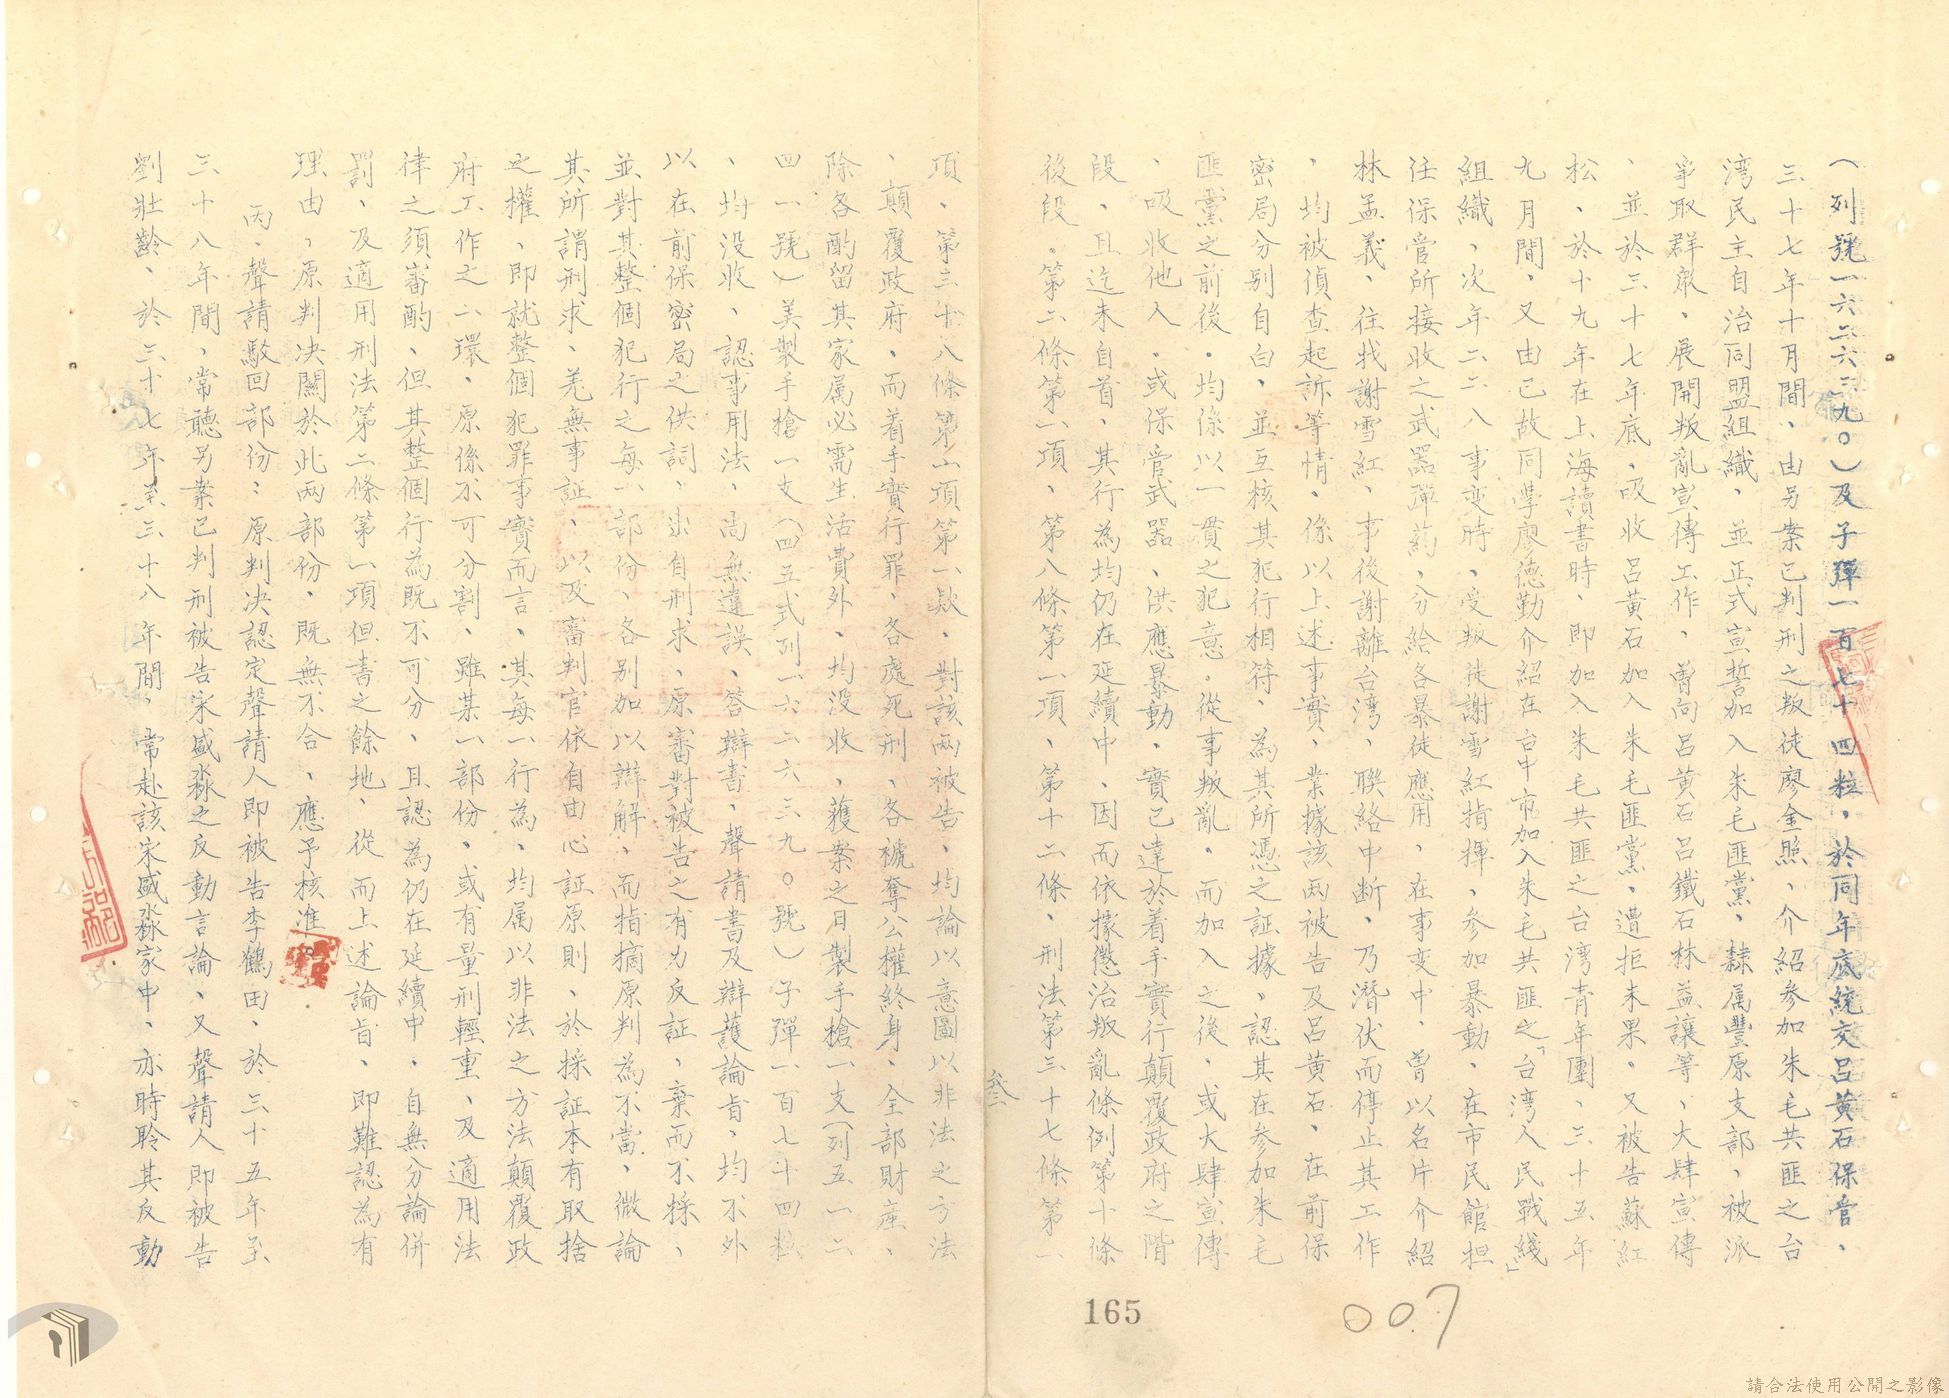 (列號一六二六三九。)及子彈一百七十四粒,於同年底統交呂黃石保管、
三十七年十月間、由另案已判刑之叛徒廖金照、介紹參加朱毛共匪之台
湾民主自治同盟組織、並正式宣誓加入朱毛匪黨、隸属豐原支部、被派
爭取群眾、展開叛亂宣傳工作、曽向呂黃石呂鐵石林益讓等、大肆宣傳
、並於三十七年底、吸收呂黃石加入朱毛匪黨、遭拒未果。又被告蘇紅
松、於十九年在上海讀書時、即加入朱毛共匪之台湾青年團、三十五年
九月間、又由已故同學廖德勤介紹在台中市加入朱毛共匪之「台湾人民戰綫」
組織、次年二二八事变時、受叛徒謝雪紅指揮、參加暴動、在市民館担
任保管所接收之武器彈药、分給各暴徒應用、在事变中、曽以名片介紹
林孟義、往找謝雪紅、事後謝離台湾、聯絡中断、乃潛伏而停止其工作
、均被偵查起訴等情、係以上述事實、業據該两被告及呂黃石、在前保
密局分别自白、並互核其犯行相符、為其所憑之証據、認其在參加朱毛
匪黨之前後、均係以一貫之犯意、從事叛亂、而加入之後、或大肆宣傳
、吸收他人、或保管武器、洪應暴動、實已達於着手實行顛覆政府之階
段、且迄未自首、其行為均仍在延續中、因而依據懲治叛亂條例第十條
後段。第二條第一項、第八條第一項、第十二條、刑法第三十七條第一
叁
165
007
項、第三十八條第一項第一欵、對該两被告、均論以意圖以非法之方法
、顛覆政府、而着手實行罪、各處死刑、各褫奪公權終身、全部財產、
除各酌留其家属必需生活費外、均没收、獲案之日製手槍一支(列五一二
四一號)美製手槍一支(四五式列一六二六三九。號)子彈一百七十四粒
、均没收、認事用法、尚無違誤、答辯書、聲請書及辯護論旨、均不外
以在前保密局之供詞、出自刑求、原審對被告之有力反証、棄而不採、
並對其整個犯行之每一部份、各别加以辯解、而指摘原判為不當、微論
其所謂刑求、羌無事証、以及審判官依自由心証原則、於採証本有取捨
之權、即就整個犯罪事實而言、其每一行為、均属以非法之方法顛覆政
府工作之一環、原係不可分割、雖某一部份、或有量刑輕重、及適用法
律之須審酌、但其整個行為既不可分、且認為仍在延續中、自無分論併
罰、及適用刑法第二條第一項但書之餘地、從而上述論旨、即難認為有
理由、原判决關於此两部份、既無不合、應予核准。
丙、聲請駁回部份:原判决認定聲請人即被告李鶴田、於三十五年至
三十八年間、常聽另案已判刑被告宋盛淼之反動言論、又聲請人即被告
劉壯齡、於三十七年至三十八年間、常赴該宋盛淼家中、亦時聆其反動
請合法使用公開之影像